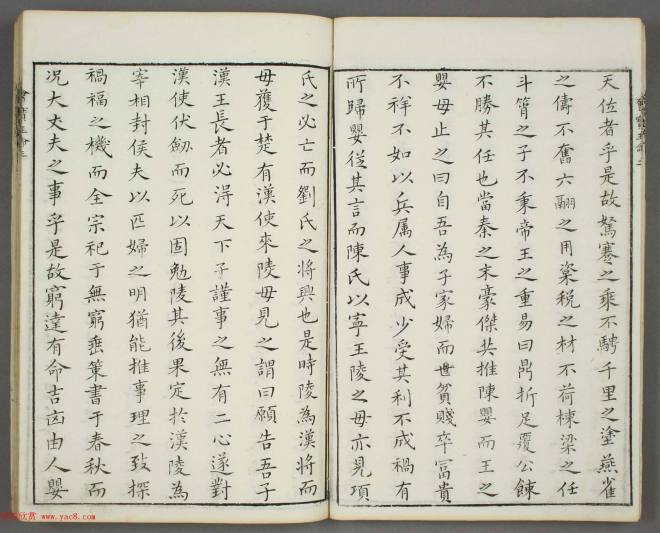 天位者乎是故駑蹇之乘不騁千里之塗燕雀
之儔不奮六翮之用楶梲之材不荷棟梁之任
斗筲之子不秉帝王之重易曰鼎折足覆公餗
不勝其任也當秦之末豪傑共推陳嬰而王之
嬰母止之曰自吾為子家婦而世貧賤卒富貴
不祥不如以兵属人事成少受其利不成禍有
所歸嬰從其言而陳氏以寧王陵之母亦見項
氏之必亡而劉氏之將興也是時陵為漢將而
母獲于楚有漢使來陵母見之謂曰願告吾子
漢王長者必淂天下子謹事之無有二心遂對
漢使伏劒而死以固勉陵其後果定於漢陵為
宰相封侯夫以匹婦之明猶能推事理之致探
禍福之機而全宗祀于無窮垂策書于春秋而
况大丈夫之事乎是故窮達有命吉凶由人嬰
www.yac8.com